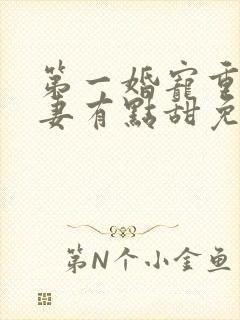 第一婚寵重
妻有點甜免
第N个小金鱼